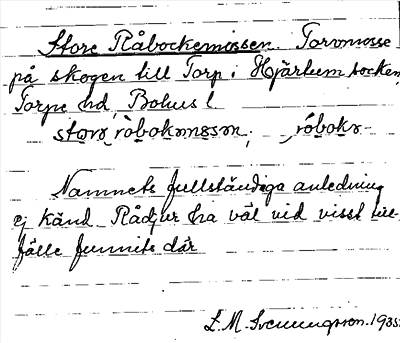 Store Råbockemossen. Torvmosse
på skogen till Torp i Hjärtum socken,
Torpe hd, Bohusl.
storo ròbokomoson, róboko-
Namnets fullständiga anledning
ej känd. Rådjur ha väl vid visst till-
fälle funnits där
L. M. Svenungsson. 1935.